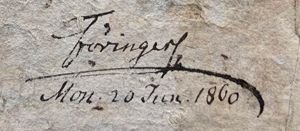 Fröringer
Mon. 20 Jun. 1860